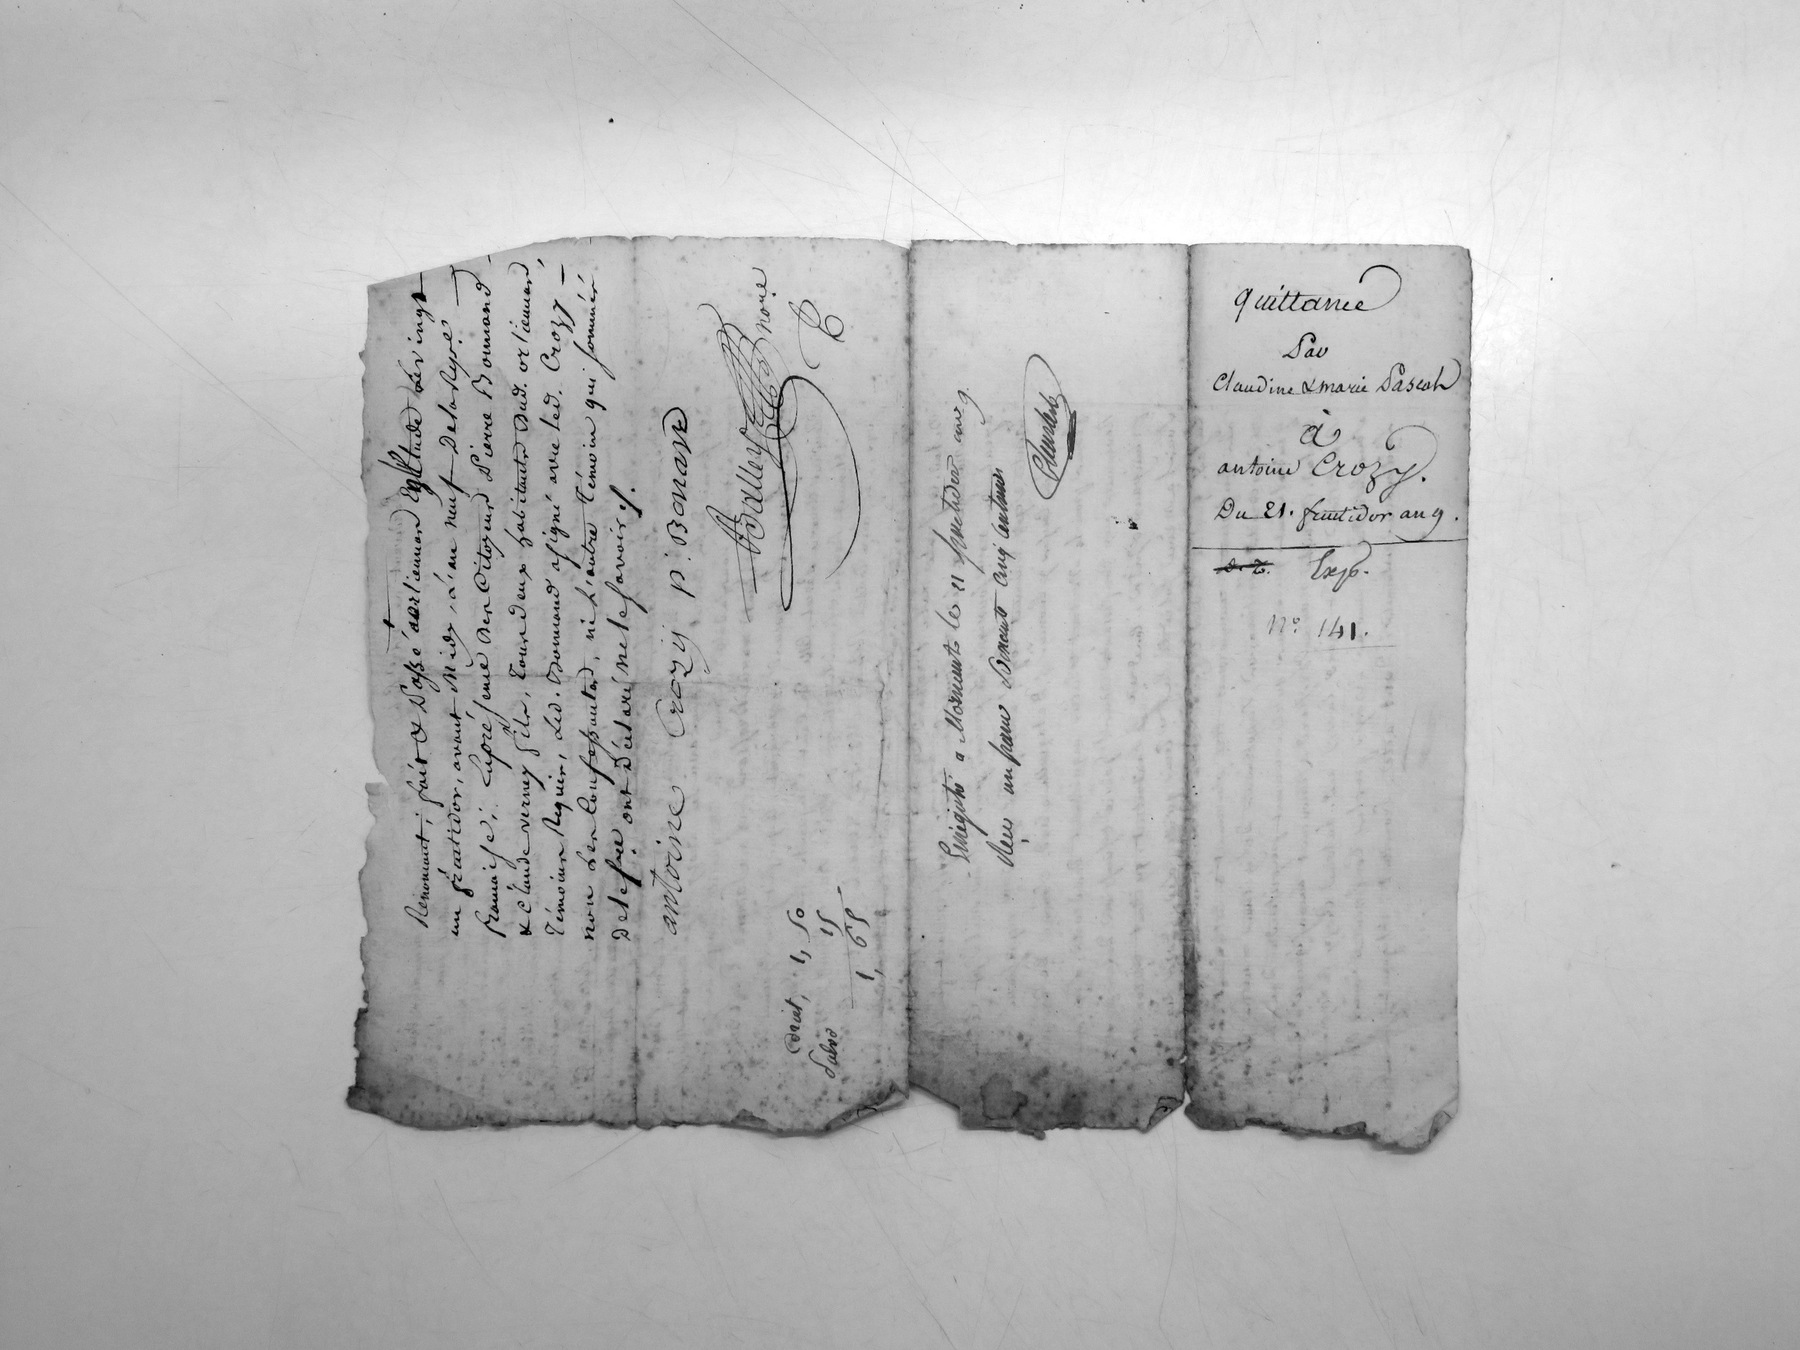 Renonçant, fait & Passé aortiennas Le vingt
un fructidor, avant Midy, L'an neuf De la Rep.e
française, En présence Des Citoyens Pierre Bonnand
& Claude verney fils, tous deux habitants Dud. ortiennas,
Témoins Requis, Led. Bonnand a signé avec led. Crozy
non Les Confessantes, ni L'autre Témoin qui sommés
De le fre ont Déclaré ne le savoir.
antoine Crozy P. Bonand
nore
Droit, 1,50
Subvo 15
1,65
Enregistré a Mornant le 21 fructidor an 9.
Reçu un franc Soixante cinq Centimes
quittance
Par
Claudine & marie Pascal
à
antoine Crozy.
Du 21. fructidor an 9.
Exp.
N.o 141.